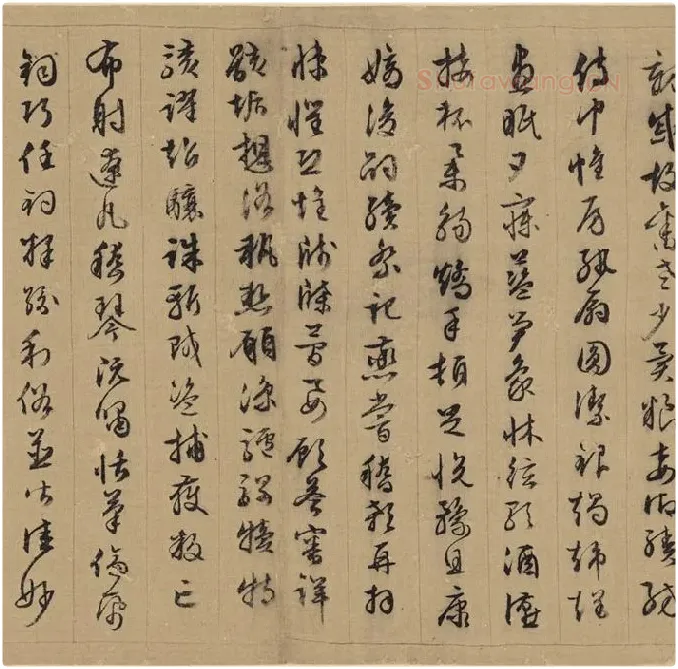 親戚故舊老少異粮妾御績紡
侍巾帷房紈扇圓潔銀燭煒煌
晝眠夕寐藍笋象牀絃歌酒讌
接杯舉觴矯手頓足悅豫且康
嫡後嗣續祭祀蒸嘗稽顙再拜
悚懼恐惶牋牒簡要顧答審詳
骸垢想浴執熱願涼驢騾犢特
駭躍超驤誅斬賊盜捕獲叛亡
布射遼丸嵇琴阮嘯恬筆倫紙
鈞巧任釣釋紛利俗並皆佳妙